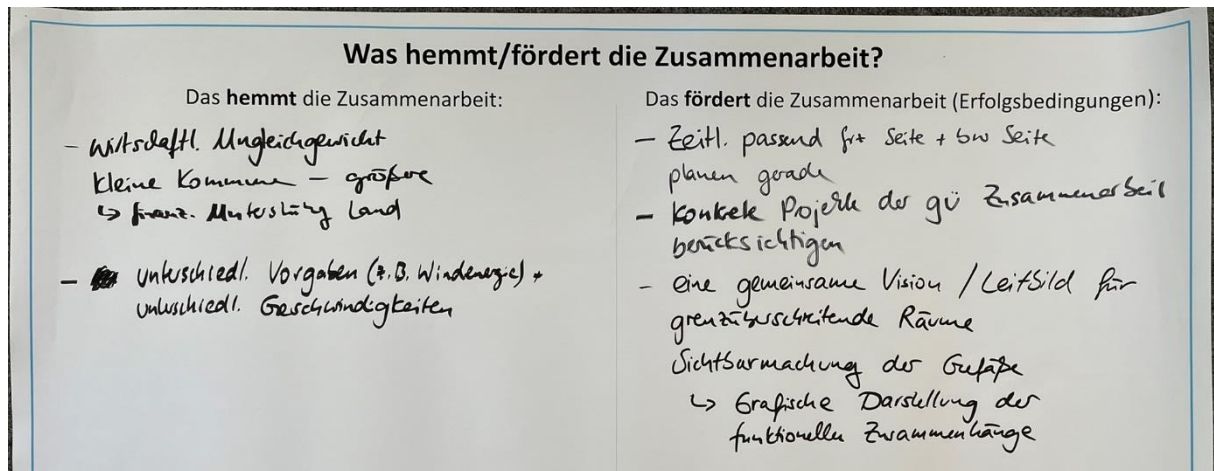 Was hemmt/fördert die Zusammenarbeit?
Das hemmt die Zusammenarbeit:
- Wirtschaftl. Ungleichgewicht
kleine Kommune - größere
↳ finanz. Unterstützg Land
- unterschiedl. Vorgaben (z.B. Windenergie) +
unterschiedl. Geschwindigkeiten
Das fördert die Zusammenarbeit (Erfolgsbedingungen):
- Zeitl. passend frz Seite + bw Seite
planen gerade
- Konkrete Projekte der gü Zusammenarbeit
berücksichtigen
- eine gemeinsame Vision / Leitbild für
grenzüberschreitende Räume
Sichtbarmachung der Gefäße
↳ Grafische Darstellung der
funktionellen Zusammenhänge